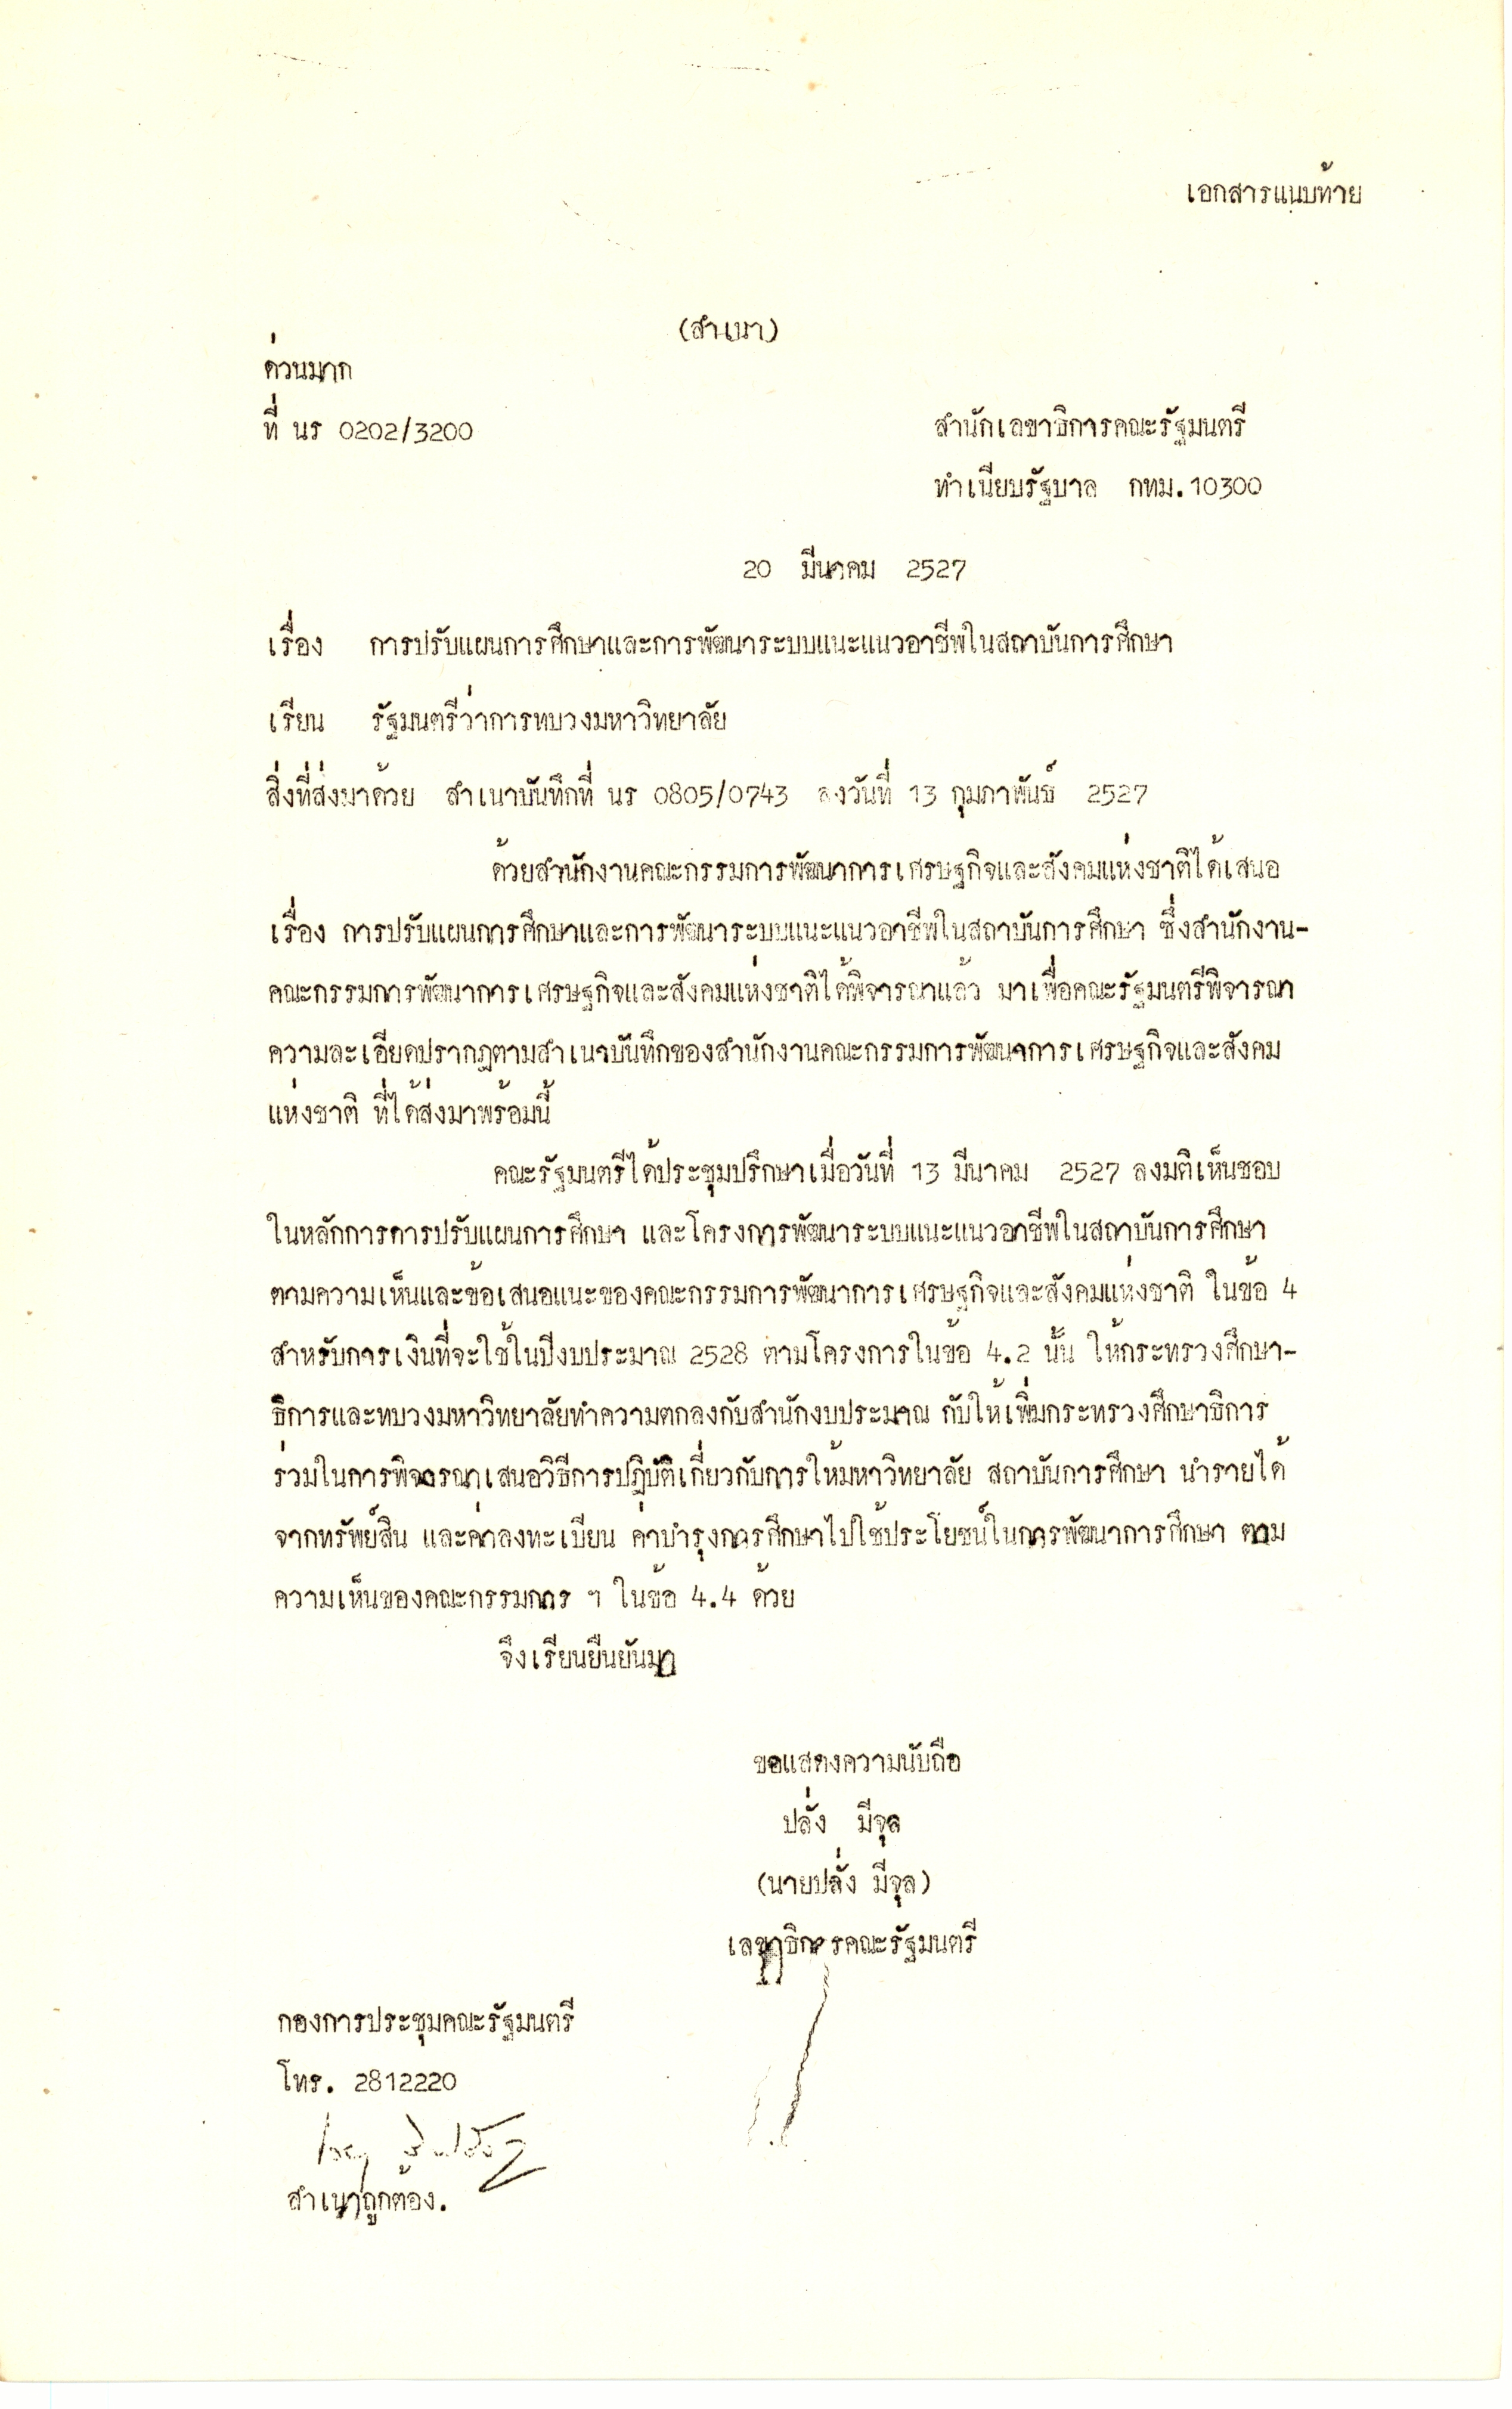 เอกสารแนบท้าย
(สำเนา)
ด่วนมาก
ที่ นร 0202/3200
สำนักเลขาธิการคณะรัฐมนตรี
ทำเนียบรัฐบาล กทม.10300
20 มีนาคม 2527
เรื่อง การปรับแผนการศึกษาและการพัฒนาระบบแนะแนวอาชีพในสถาบันการศึกษา
เรียน รัฐมนตรีว่าการทบวงมหาวิทยาลัย
สิ่งที่ส่งมาด้วย สำเนาบันทึกที่ นร 0805/0743 ลงวันที่ 13 กุมภาพันธ์ 2527
ด้วยสำนักงานคณะกรรมการพัฒนาการเศรษฐกิจและสังคมแห่งชาติได้เสนอ
เรื่อง การปรับแผนการศึกษาและการพัฒนาระบบแนะแนวอาชีพในสถาบันการศึกษา ซึ่งสำนักงาน-
คณะกรรมการพัฒนาการเศรษฐกิจและสังคมแห่งชาติได้พิจารณาแล้ว มาเพื่อคณะรัฐมนตรีพิจารณา
ความละเอียดปรากฏตามสำเนาบันทึกของสำนักงานคณะกรรมการพัฒนาการเศรษฐกิจและสังคม
แห่งชาติ ที่ได้ส่งมาพร้อมนี้
คณะรัฐมนตรีได้ประชุมปรึกษาเมื่อวันที่ 13 มีนาคม 2527 ลงมติเห็นชอบ
ในหลักการการปรับแผนการศึกษา และโครงการพัฒนาระบบแนะแนวอาชีพในสถาบันการศึกษา
ตามความเห็นและข้อเสนอแนะของคณะกรรมการพัฒนาการเศรษฐกิจและสังคมแห่งชาติ ในข้อ 4
สำหรับการเงินที่จะใช้ในปีงบประมาณ 2528 ตามโครงการในข้อ 4.2 นั้น ให้กระทรวงศึกษา-
ธิการและทบวงมหาวิทยาลัยทำความตกลงกับสำนักงบประมาณ กับให้เพิ่มกระทรวงศึกษาธิการ
ร่วมในการพิจารณาเสนอวิธีการปฏิบัติเกี่ยวกับการให้มหาวิทยาลัย สถาบันการศึกษา นำรายได้
จากทรัพย์สิน และค่าลงทะเบียน ค่าบำรุงการศึกษาไปใช้ประโยชน์ในการพัฒนาการศึกษา ตาม
ความเห็นของคณะกรรมการ ฯ ในข้อ 4.4 ด้วย
จึงเรียนยืนยันมา
ขอแสดงความนับถือ
ปลั่ง มีจุล
(นายปลั่ง มีจุล)
เลขาธิการคณะรัฐมนตรี
กองการประชุมคณะรัฐมนตรี
โทร. 2812220
สำเนาถูกต้อง.